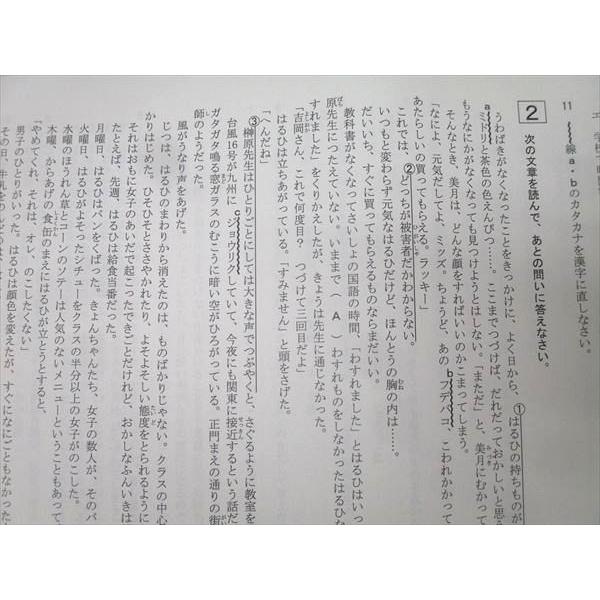 11 線a・bのカタカナを漢字に直しなさい。
2 次の文章を読んで、あとの問いに答えなさい。
うわばきがなくなったことをきっかけに、よく日から、①はるひの持ちものが
aミドリと茶色の色えんぴつ……。ここまでつづけば、だれだっておかしいと思う
もうなにかがなくなっても見つけようとはしない。「まただ」と、美月にむかって
そんなとき、美月は、どんな顔をすればいいのかこまってしまう。
「なによ、元気だしてよ、ミッズ。ちょうど、あのbフデバコ、こわれかかって
あたらしいの買ってもらえる。ラッキー」
これでは、②どっちが被害者だかわからない。
いつもと変わらず元気なはるひだけど、ほんとうの胸の内は……。
だいいち、すぐに買ってもらえるものならまだいい。
教科書がなくなってさいしょの国語の時間、「わすれました」とはるひはいっ
原先生につたえていない。いままで（ A ）わすれものをしなかったはるひな
すれました」をくりかえしたが、きょうは先生に通じなかった。
「吉岡さん、これで何度目？ つづけて三回目だよ」
はるひは立ちあがっている。「すみません」と頭をさげた。
「へんだね」
③榊原先生はひとりごとにしては大きな声でつぶやくと、さぐるように教室を
台風16号が九州にcジョウリクしていて、今夜にも関東に接近するという話だ
ガタガタ鳴る窓ガラスのむこうに暗い空がひろがっている。正門まえの通りの街
師のようだった。
風がうなり声をあげた。
じつは、はるひのまわりから消えたのは、ものばかりじゃない。クラスの中心
かりはじめた。ひそひそとささやかれたり、よそよそしい態度をとられるように
それはおもに女子のあいだで起こったできごとだけれど、おかしなふんいきは
たとえば、先週、はるひは給食当番だった。
月曜日、はるひがパンをくばった。きょんちゃんたち、女子の数人が、そのパ
火曜日、はるひがよそったシチューをクラスの半分以上の女子がのこした。
水曜のほうれん草とコーンのソテーは人気のないメニューということもあって
木曜、からあげの食缶のまえにはるひが立とうとすると、
「やめてくれ、それは、オレ、のこしたくない」
男子のひとりがいった。はるひは顔色を変えたが、すぐになにごともなかった